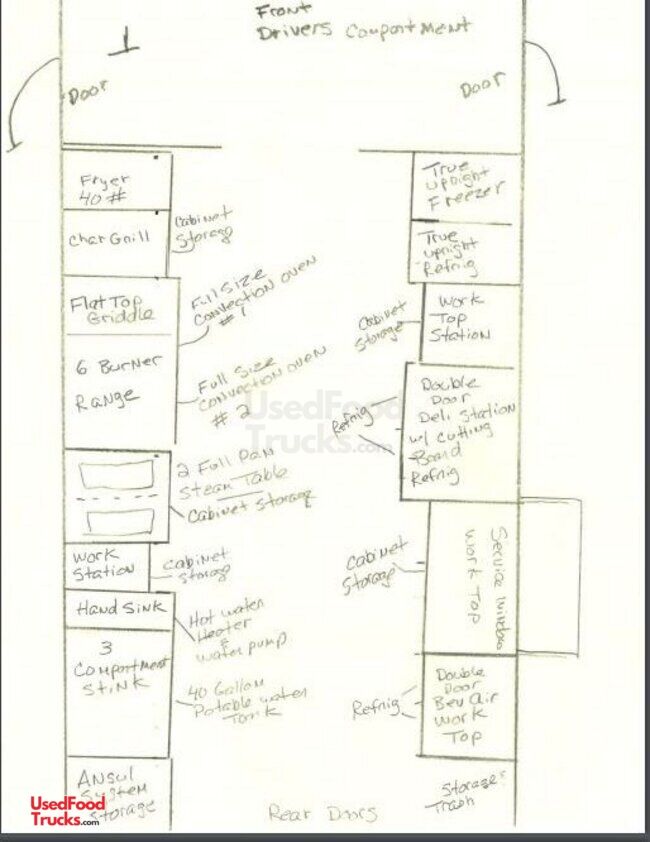 Front
Drivers Compartment
1
Door
Door
Fryer
40 #
Char Grill
Cabinet
Storage
Flat Top
Griddle
Full Size
Convection Oven
# 1
6 Burner
Range
Full Size
Convection Oven
# 2
2 Full Pan
Steam Table
Cabinet Storage
Work
Station
Cabinet
Storage
Hand Sink
Hot water
Heater
&
water pump
3
Compartment
Sink
40 Gallon
Potable water
Tank
Ansul
System
Storage
True
upright
Freezer
True
upright
Refrig
Work
Top
Station
Cabinet
Storage
Double
Door
Deli Station
w/ Cutting
Board
Refrig
Refrig
Service Window
Work Top
Cabinet
Storage
Double
Door
Bev Air
Work
Top
Refrig
Storage
Trash
Rear Doors
UsedFood
Trucks.com
UsedFood
Trucks.com